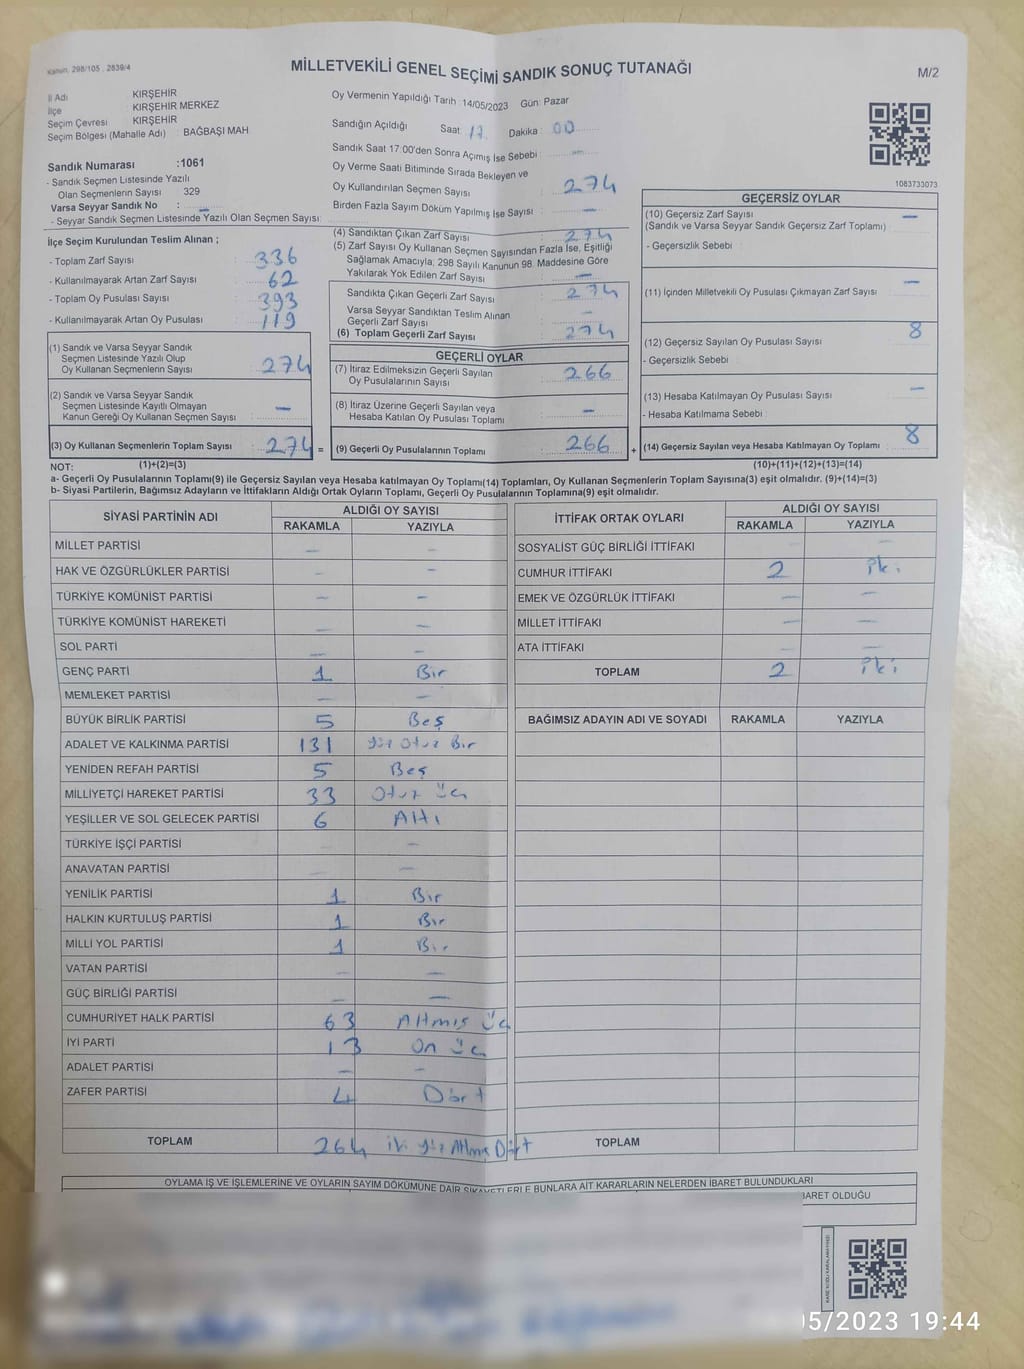 Kanun: 298/105 , 2839/4
MİLLETVEKİLİ GENEL SEÇİMİ SANDIK SONUÇ TUTANAĞI
M/2
İl Adı KIRŞEHİR
İlçe KIRŞEHİR MERKEZ
Seçim Çevresi KIRŞEHİR
Seçim Bölgesi (Mahalle Adı) : BAĞBAŞI MAH
Oy Vermenin Yapıldığı Tarih :14/05/2023 Gün: Pazar
Sandığın Açıldığı Saat : 17 Dakika : 00
Sandık Saat 17:00'den Sonra Açımış İse Sebebi : —
Oy Verme Saati Bitiminde Sırada Bekleyen ve
Oy Kullandırılan Seçmen Sayısı : 274
Birden Fazla Sayım Döküm Yapılmış İse Sayısı : —
Sandık Numarası :1061
- Sandık Seçmen Listesinde Yazılı
Olan Seçmenlerin Sayısı 329
Varsa Seyyar Sandık No : —
- Seyyar Sandık Seçmen Listesinde Yazılı Olan Seçmen Sayısı:
1083733073
İlçe Seçim Kurulundan Teslim Alınan ;
- Toplam Zarf Sayısı : 336
- Kullanılmayarak Artan Zarf Sayısı : 62
- Toplam Oy Pusulası Sayısı : 393
- Kullanılmayarak Artan Oy Pusulası : 119
(1) Sandık ve Varsa Seyyar Sandık
Seçmen Listesinde Yazılı Olup
Oy Kullanan Seçmenlerin Sayısı : 274
(2) Sandık ve Varsa Seyyar Sandık
Seçmen Listesinde Kayıtlı Olmayan
Kanun Gereği Oy Kullanan Seçmen Sayısı : —
(3) Oy Kullanan Seçmenlerin Toplam Sayısı : 274 =
(4) Sandıktan Çıkan Zarf Sayısı : 274
(5) Zarf Sayısı Oy Kullanan Seçmen Sayısından Fazla İse, Eşitliği
Sağlamak Amacıyla; 298 Sayılı Kanunun 98. Maddesine Göre
Yakılarak Yok Edilen Zarf Sayısı : —
Sandıkta Çıkan Geçerli Zarf Sayısı : 274
Varsa Seyyar Sandıktan Teslim Alınan
Geçerli Zarf Sayısı : —
(6) Toplam Geçerli Zarf Sayısı : 274
GEÇERLİ OYLAR
(7) İtiraz Edilmeksizin Geçerli Sayılan
Oy Pusulalarının Sayısı : 266
(8) İtiraz Üzerine Geçerli Sayılan veya
Hesaba Katılan Oy Pusulası Toplamı : —
(9) Geçerli Oy Pusulalarının Toplamı : 266 +
GEÇERSİZ OYLAR
(10) Geçersiz Zarf Sayısı : —
(Sandık ve Varsa Seyyar Sandık Geçersiz Zarf Toplamı)
- Geçersizlik Sebebi :
(11) İçinden Milletvekili Oy Pusulası Çıkmayan Zarf Sayısı : —
(12) Geçersiz Sayılan Oy Pusulası Sayısı : 8
- Geçersizlik Sebebi :
(13) Hesaba Katılmayan Oy Pusulası Sayısı : —
- Hesaba Katılmama Sebebi :
(14) Geçersiz Sayılan veya Hesaba Katılmayan Oy Toplamı : 8
NOT: (1)+(2)=(3) (10)+(11)+(12)+(13)=(14)
a- Geçerli Oy Pusulalarının Toplamı(9) ile Geçersiz Sayılan veya Hesaba katılmayan Oy Toplamı(14) Toplamları, Oy Kullanan Seçmenlerin Toplam Sayısına(3) eşit olmalıdır. (9)+(14)=(3)
b- Siyasi Partilerin, Bağımsız Adayların ve İttifakların Aldığı Ortak Oyların Toplamı, Geçerli Oy Pusulalarının Toplamına(9) eşit olmalıdır.
SİYASİ PARTİNİN ADI ALDIĞI OY SAYISI
RAKAMLA YAZIYLA
MİLLET PARTİSİ — —
HAK VE ÖZGÜRLÜKLER PARTİSİ — —
TÜRKİYE KOMÜNİST PARTİSİ — —
TÜRKİYE KOMÜNİST HAREKETİ — —
SOL PARTİ — —
GENÇ PARTİ 1 Bir
MEMLEKET PARTİSİ — —
BÜYÜK BİRLİK PARTİSİ 5 Beş
ADALET VE KALKINMA PARTİSİ 131 Yüz Otuz Bir
YENİDEN REFAH PARTİSİ 5 Beş
MİLLİYETÇİ HAREKET PARTİSİ 33 Otuz üç
YEŞİLLER VE SOL GELECEK PARTİSİ 6 Altı
TÜRKİYE İŞÇİ PARTİSİ — —
ANAVATAN PARTİSİ — —
YENİLİK PARTİSİ 1 Bir
HALKIN KURTULUŞ PARTİSİ 1 Bir
MİLLİ YOL PARTİSİ 1 Bir
VATAN PARTİSİ — —
GÜÇ BİRLİĞİ PARTİSİ — —
CUMHURİYET HALK PARTİSİ 63 Altmış üç
İYİ PARTİ 13 On üç
ADALET PARTİSİ — —
ZAFER PARTİSİ 4 Dört
TOPLAM 264 iki yüz Altmış Dört
İTTİFAK ORTAK OYLARI ALDIĞI OY SAYISI
RAKAMLA YAZIYLA
SOSYALİST GÜÇ BİRLİĞİ İTTİFAKI — —
CUMHUR İTTİFAKI 2 İki
EMEK VE ÖZGÜRLÜK İTTİFAKI — —
MİLLET İTTİFAKI — —
ATA İTTİFAKI — —
TOPLAM 2 İki
BAĞIMSIZ ADAYIN ADI VE SOYADI RAKAMLA YAZIYLA
TOPLAM
OYLAMA İŞ VE İŞLEMLERİNE VE OYLARIN SAYIM DÖKÜMÜNE DAİR ŞİKAYETLERLE BUNLARA AİT KARARLARIN NELERDEN İBARET BULUNDUKLARI
BARET OLDUĞU
05/2023 19:44